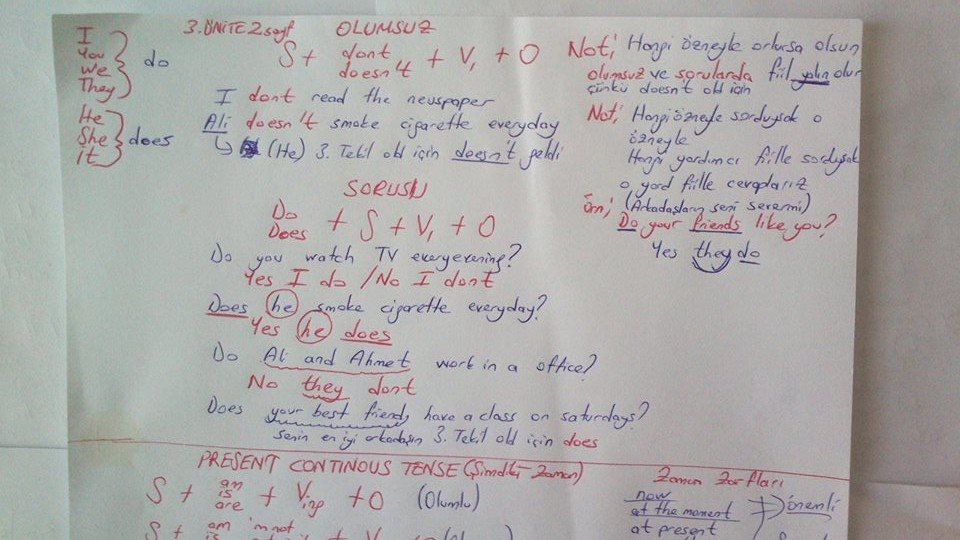 3. ÜNİTE 2 sayf OLUMSUZ
I
You
We
They
do
He
She
it
does
S + dont doesn't + V1 + O
I dont read the newspaper
Ali doesn't smoke cigarette everyday
(He) 3. Tekil old için doesn't geldi
SORUSU
Do
Does + S + V1 + O
Do you watch TV everyevening?
Yes I do / No I dont
Does he smoke cigarette everyday?
Yes he does
Do Ali and Ahmet work in a office?
No they dont
Does your best friend, have a class on saturdays?
senin en iyi arkadaşın 3. Tekil old için does
Not; Hangi özneyle olursa olsun
olumsuz ve sorularda fiil yalın olur
çünkü doesn't old için
Not; Hangi özneyle sorduysak o
özneyle
Hangi yardımcı fiille sorduysak
o yard fiille cevaplarız
örn; (Arkadaşların seni severmi)
Do your friends like you?
Yes they do
PRESENT CONTINOUS TENSE (Şimdiki Zaman)
S + am is are + Ving + O (Olumlu)
S + am 'm not
Zaman Zarfları
now
at the moment
at present
önemli